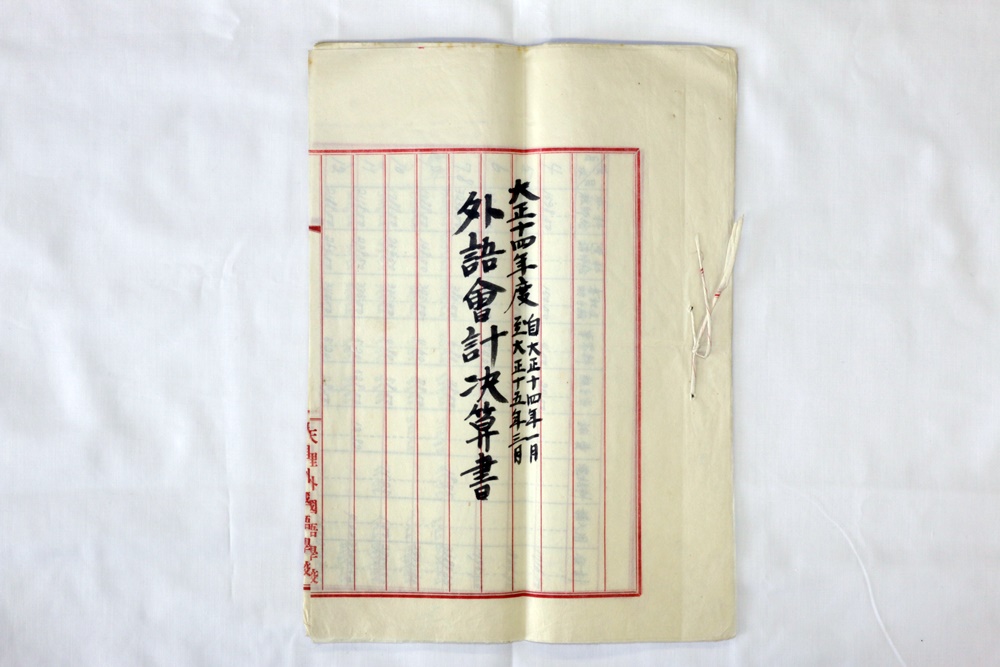 大正十四年度
自大正十四年一月
至大正十五年三月
外語會計決算書
天理外國語學校